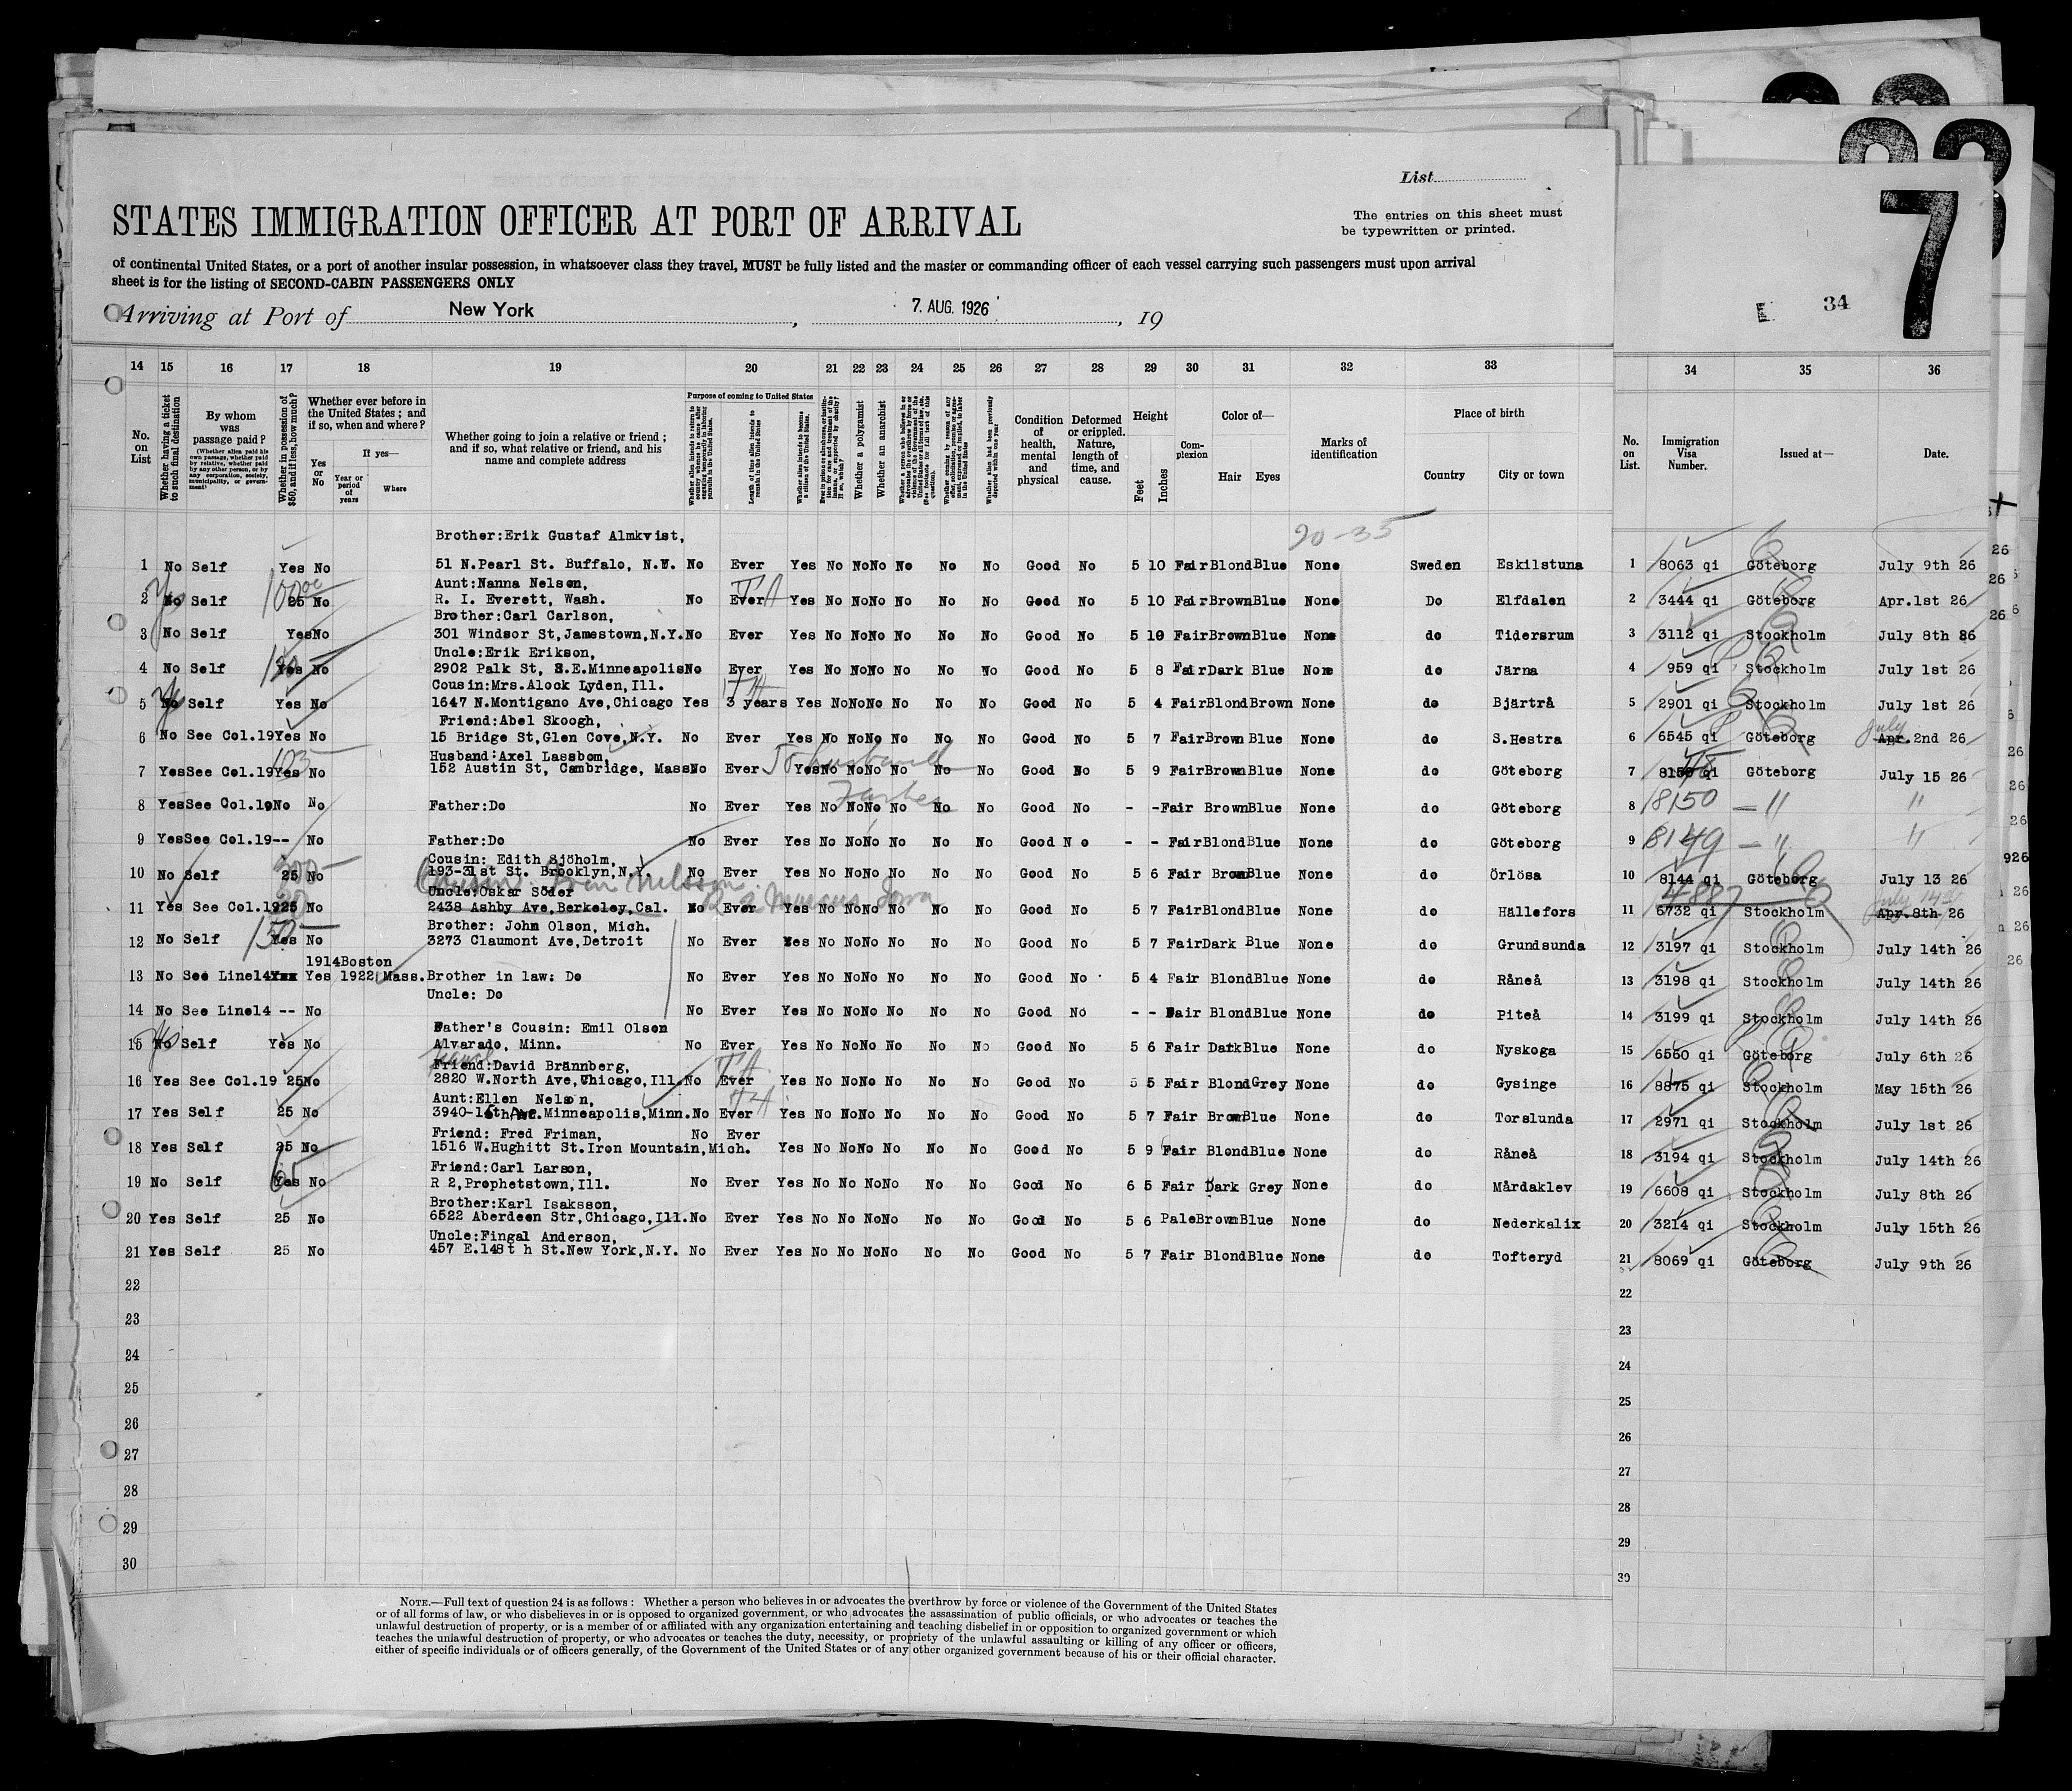 List
STATES IMMIGRATION OFFICER AT PORT OF ARRIVAL
The entries on this sheet must
be typewritten or printed.
of continental United States, or a port of another insular possession, in whatsoever class they travel, MUST be fully listed and the master or commanding officer of each vessel carrying such passengers must upon arrival
sheet is for the listing of SECOND-CABIN PASSENGERS ONLY
Arriving at Port of New York, 7. AUG. 1926, 19
34
7
14 15 16 17 18 19 20 21 22 23 24 25 26 27 28 29 30 31 32 33 34 35 36
No. on List
Whether having a ticket to such final destination
By whom was passage paid?
(Whether alien paid his own passage, whether paid by relative, whether paid by any other person, or by any corporation, society, municipality, or government)
Whether in possession of $50, and if less, how much?
Whether ever before in the United States; and if so, when and where?
Yes or No
If yes—
Year or period of years
Where
Whether going to join a relative or friend; and if so, what relative or friend, and his name and complete address
Purpose of coming to United States
Length of time alien intends to remain in the United States
Whether alien intends to become a citizen of the United States
Whether a polygamist
Whether an anarchist
Whether alien had been previously deported within one year
Condition of health, mental and physical
Deformed or crippled. Nature, length of time, and cause.
Height
Feet
Inches
Complexion
Color of—
Hair
Eyes
Marks of identification
Place of birth
Country
City or town
No. on List.
Immigration Visa Number.
Issued at—
Date.
20-35
Brother:Erik Gustaf Almkvist,
1 No Self Yes No 51 N.Pearl St. Buffalo, N.Y. No Ever Yes No No No No No No Good No 5 10 Fair Blond Blue None Sweden Eskilstuna 1 8063 qi Göteborg July 9th 26
Aunt:Nanna Nelson,
2 No Self 25 No R. I. Everett, Wash. No Ever Yes No No No No No No Good No 5 10 Fair Brown Blue None Do Elfdalen 2 3444 qi Göteborg Apr.1st 26
Brother:Carl Carlson,
3 No Self Yes No 301 Windsor St,Jamestown,N.Y. No Ever Yes No No No No No No Good No 5 10 Fair Brown Blue None do Tidersrum 3 3112 qi Stockholm July 8th 26
Uncle:Erik Erikson,
4 No Self Yes No 2902 Palk St, S.E.Minneapolis No Ever Yes No No No No No No Good No 5 8 Fair Dark Blue None do Järna 4 959 qi Stockholm July 1st 26
Cousin:Mrs.Alock Lyden,Ill.
5 No Self Yes No 1647 N.Montigano Ave,Chicago Yes 3 years Yes No No No No No No Good No 5 4 Fair Blond Brown None do Bjärtrå 5 2901 qi Stockholm July 1st 26
Friend:Abel Skoogh,
6 No See Col.19 Yes No 15 Bridge St,Glen Cove,N.Y. No Ever Yes No No No No No No Good No 5 7 Fair Brown Blue None do S.Hestra 6 6545 qi Göteborg July Apr.2nd 26
Husband:Axel Lassbom,
7 Yes See Col.19 Yes No 152 Austin St, Cambridge, Mass No Ever Yes No No No No No No Good No 5 9 Fair Brown Blue None do Göteborg 7 qi Göteborg July 15 26
To husband
8 Yes See Col.19 No No Father:Do No Ever Yes No No No No No No Good No - - Fair Brown Blue None do Göteborg 8 8150 — " "
Father
9 Yes See Col.19 -- No Father:Do No Ever Yes No No No No No No Good No - - Fair Blond Blue None do Göteborg 9 8149 — " "
Cousin: Edith Sjöholm,
10 No Self 25 No 193-31st St. Brooklyn,N.Y. No Ever Yes No No No No No No Good No 5 6 Fair Brown Blue None do Örlösa 10 8144 qi Göteborg July 13 26
Uncle:Oskar Söder
11 Yes See Col.19 25 No 2438 Ashby Ave,Berkeley,Cal. No Ever Yes No No No No No No Good No 5 7 Fair Blond Blue None do Hällefors 11 6732 qi Stockholm Apr.8th 26
Cousin: Nelsson R 2 Marcus Iowa
Brother: John Olson, Mich.
12 No Self Yes No 3273 Claumont Ave,Detroit No Ever Yes No No No No No No Good No 5 7 Fair Dark Blue None do Grundsunda 12 3197 qi Stockholm July 14th 26
1914 Boston
13 No See Line14 Yes 1922 Mass. Brother in law: Do No Ever Yes No No No No No No Good No 5 4 Fair Blond Blue None do Råneå 13 3198 qi Stockholm July 14th 26
Uncle: Do
14 No See Line14 -- No No Ever Yes No No No No No No Good No - - Fair Blond Blue None do Piteå 14 3199 qi Stockholm July 14th 26
Father's Cousin: Emil Olson
15 No Self Yes No Alvarado, Minn. No Ever Yes No No No No No No Good No 5 6 Fair Dark Blue None do Nyskoga 15 6560 qi Göteborg July 6th 26
Friend:David Brännberg,
16 Yes See Col.19 25 No 2820 W.North Ave,Chicago,Ill. No Ever Yes No No No No No No Good No 5 5 Fair Blond Grey None do Gysinge 16 8875 qi Stockholm May 15th 26
Aunt:Ellen Nelson,
17 Yes Self 25 No 3940-16th Ave.Minneapolis,Minn. No Ever Yes No No No No No No Good No 5 7 Fair Brown Blue None do Torslunda 17 2971 qi Stockholm July 1st 26
Friend: Fred Friman, No Ever
18 Yes Self 25 No 1516 W.Hughitt St.Iron Mountain,Mich. Yes No No No No No No Good No 5 9 Fair Blond Blue None do Råneå 18 3194 qi Stockholm July 14th 26
Friend:Carl Larson,
19 No Self Yes No R 2,Prophetstown,Ill. No Ever Yes No No No No No No Good No 6 5 Fair Dark Grey None do Mårdaklev 19 6608 qi Stockholm July 8th 26
Brother:Karl Isaksson,
20 Yes Self 25 No 6522 Aberdeen Str,Chicago,Ill. No Ever Yes No No No No No No Good No 5 6 Pale Brown Blue None do Nederkalix 20 3214 qi Stockholm July 15th 26
Uncle:Fingal Anderson,
21 Yes Self 25 No 457 E.148t h St.New York,N.Y. No Ever Yes No No No No No No Good No 5 7 Fair Blond Blue None do Tofteryd 21 8069 qi Göteborg July 9th 26
22 22
23 23
24 24
25 25
26 26
27 27
28 28
29 29
30 30
NOTE.—Full text of question 24 is as follows: Whether a person who believes in or advocates the overthrow by force or violence of the Government of the United States
or of all forms of law, or who disbelieves in or is opposed to organized government, or who advocates the assassination of public officials, or who advocates or teaches the
unlawful destruction of property, or is a member of or affiliated with any organization entertaining and teaching disbelief in or opposition to organized government or which
teaches the unlawful destruction of property, or who advocates or teaches the duty, necessity, or propriety of the unlawful assaulting or killing of any officer or officers,
either of specific individuals or of officers generally, of the Government of the United States or of any other organized government because of his or their official character.